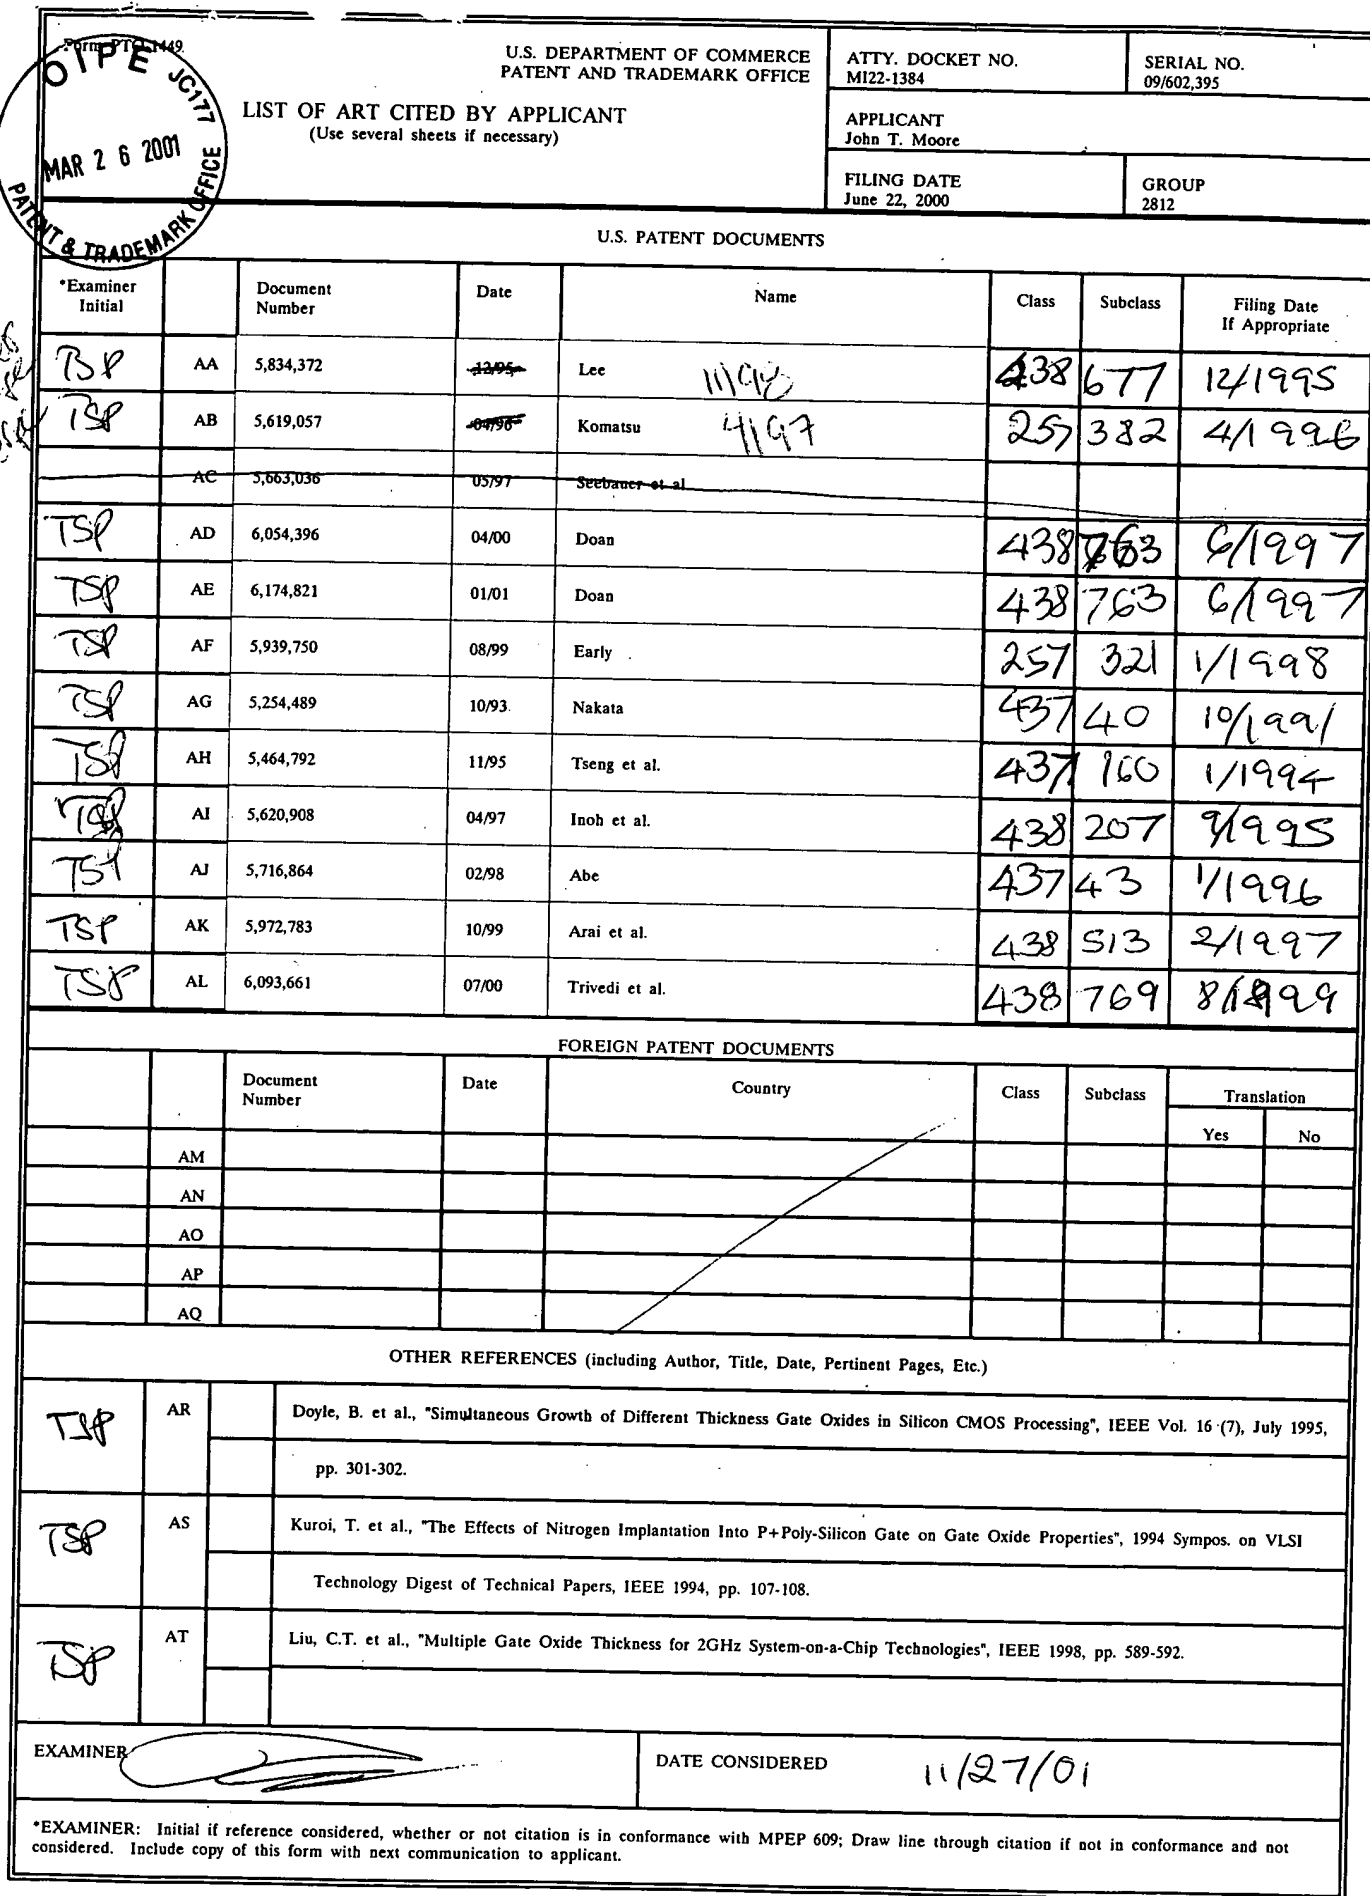 Form PTO-1449
OIPE JC177
MAR 26 2001
PATENT & TRADEMARK OFFICE
U.S. DEPARTMENT OF COMMERCE
PATENT AND TRADEMARK OFFICE
LIST OF ART CITED BY APPLICANT
(Use several sheets if necessary)
ATTY. DOCKET NO.
MI22-1384
SERIAL NO.
09/602,395
APPLICANT
John T. Moore
FILING DATE
June 22, 2000
GROUP
2812
U.S. PATENT DOCUMENTS
*Examiner Initial Document Number Date Name Class Subclass Filing Date If Appropriate
TSP AA 5,834,372 12/95 Lee 11/98 438 677 12/1995
TSP AB 5,619,057 04/96 Komatsu 4/97 257 382 4/1996
AC 5,663,036 05/97 Seebauer et al
TSP AD 6,054,396 04/00 Doan 438 763 6/1997
TSP AE 6,174,821 01/01 Doan 438 763 6/1997
TSP AF 5,939,750 08/99 Early 257 321 1/1998
TSP AG 5,254,489 10/93 Nakata 437 40 10/1991
TSP AH 5,464,792 11/95 Tseng et al. 437 160 1/1994
TSP AI 5,620,908 04/97 Inoh et al. 438 207 9/1995
TSP AJ 5,716,864 02/98 Abe 437 43 1/1996
TSP AK 5,972,783 10/99 Arai et al. 438 513 2/1997
TSP AL 6,093,661 07/00 Trivedi et al. 438 769 8/1999
FOREIGN PATENT DOCUMENTS
Document Number Date Country Class Subclass Translation
Yes No
AM
AN
AO
AP
AQ
OTHER REFERENCES (including Author, Title, Date, Pertinent Pages, Etc.)
TSP AR Doyle, B. et al., "Simultaneous Growth of Different Thickness Gate Oxides in Silicon CMOS Processing", IEEE Vol. 16 (7), July 1995,
pp. 301-302.
TSP AS Kuroi, T. et al., "The Effects of Nitrogen Implantation Into P+Poly-Silicon Gate on Gate Oxide Properties", 1994 Sympos. on VLSI
Technology Digest of Technical Papers, IEEE 1994, pp. 107-108.
TSP AT Liu, C.T. et al., "Multiple Gate Oxide Thickness for 2GHz System-on-a-Chip Technologies", IEEE 1998, pp. 589-592.
EXAMINER
DATE CONSIDERED 11/27/01
*EXAMINER: Initial if reference considered, whether or not citation is in conformance with MPEP 609; Draw line through citation if not in conformance and not
considered. Include copy of this form with next communication to applicant.